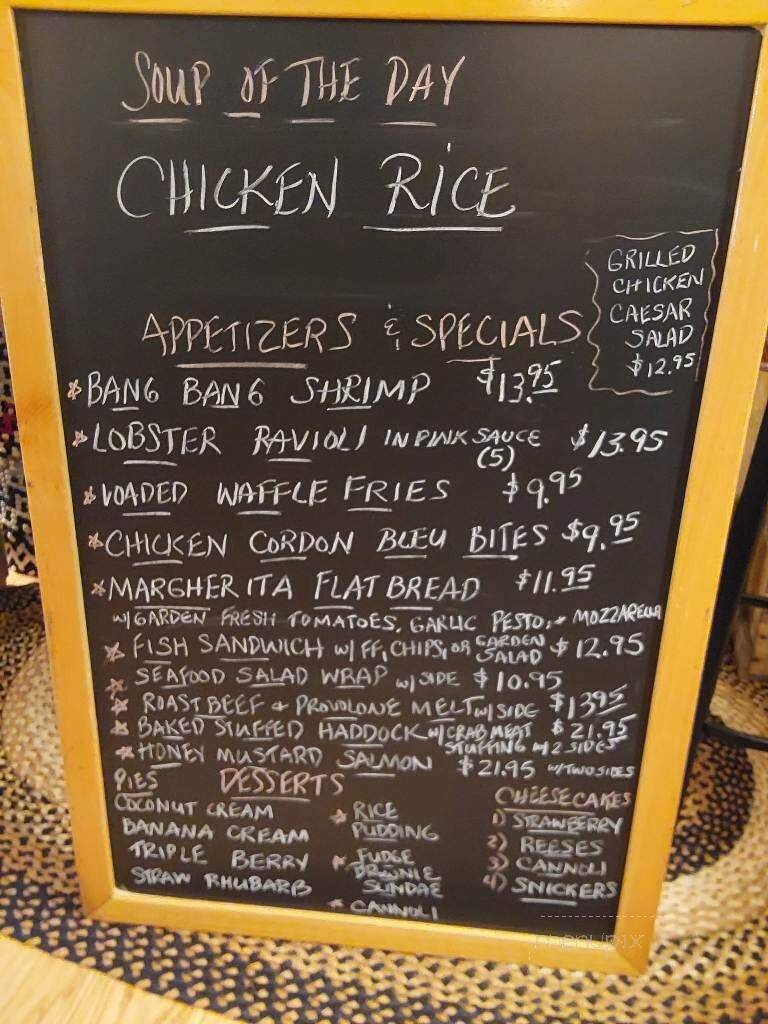 SOUP OF THE DAY
CHICKEN RICE
GRILLED
CHICKEN
CAESAR
SALAD
$12.95
APPETIZERS & SPECIALS
BANG BANG SHRIMP $13.95
LOBSTER RAVIOLI IN PINK SAUCE $13.95
(5)
LOADED WAFFLE FRIES $9.95
CHICKEN CORDON BLEU BITES $9.95
MARGHERITA FLATBREAD $11.95
W/ GARDEN FRESH TOMATOES, GARLIC PESTO, + MOZZARELLA
FISH SANDWICH W/ FF, CHIPS, OR GARDEN SALAD $12.95
SEAFOOD SALAD WRAP W/ SIDE $10.95
ROAST BEEF + PROVOLONE MELT W/ SIDE $13.95
BAKED STUFFED HADDOCK W/ CRABMEAT $21.95
STUFFING W/ 2 SIDES
HONEY MUSTARD SALMON $21.95 W/ TWO SIDES
PIES DESSERTS
COCONUT CREAM
BANANA CREAM
TRIPLE BERRY
STRAW RHUBARB
RICE
PUDDING
FUDGE
BROWNIE
SUNDAE
CANNOLI
CHEESECAKES
1) STRAWBERRY
2) REESES
3) CANNOLI
4) SNICKERS
menupix